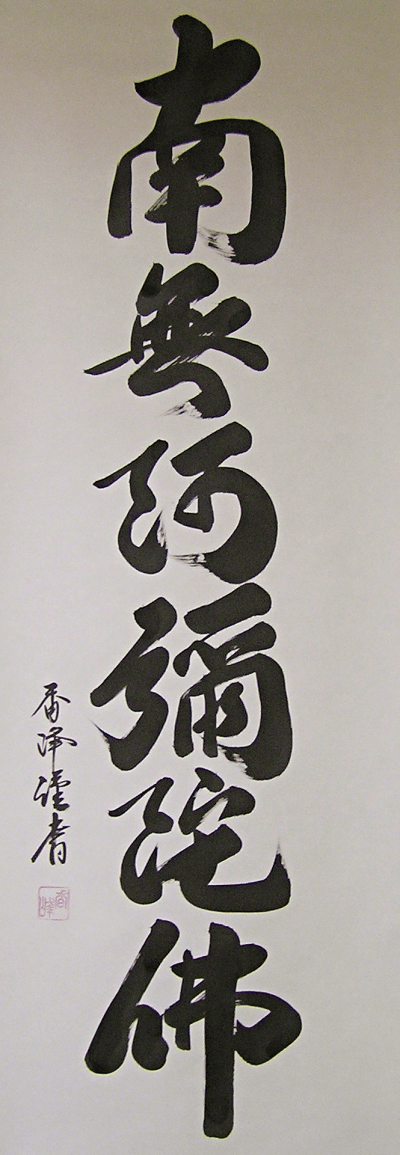 南無阿彌陀佛
香淨謹書